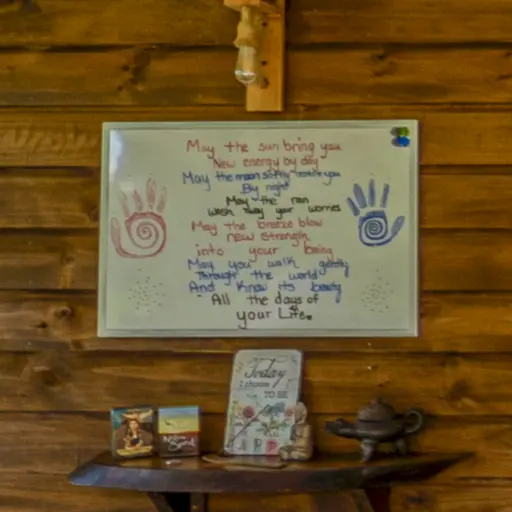 May the sun bring you
New energy by day
May the moon softly restore you
By night
May the rain
Wash away your worries
May the breeze blow
new strength
into your being
May you walk gently
Through the world
And Know its beauty
All the days of
your Life.
Today
I choose
TO BE